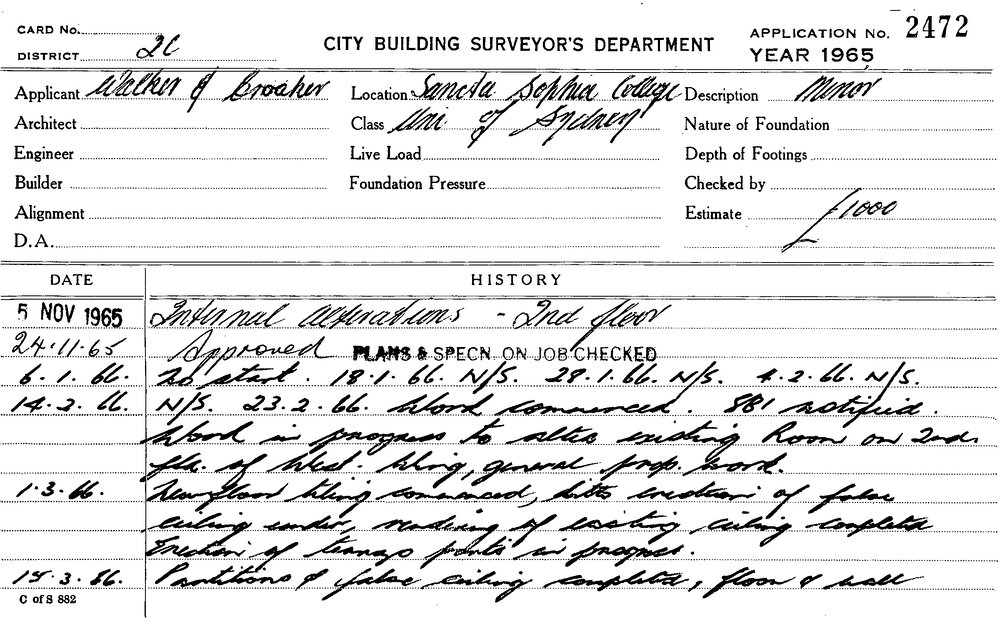 CARD No.
DISTRICT 2C
CITY BUILDING SURVEYOR'S DEPARTMENT
APPLICATION No. 2472
YEAR 1965
Applicant Walker & Croaker Location Sancta Sophia College Description Minor
Architect Class Uni. of Sydney Nature of Foundation
Engineer Live Load Depth of Footings
Builder Foundation Pressure Checked by
Alignment Estimate £1000
D.A.
DATE HISTORY
5 NOV 1965 Internal alterations - 2nd floor
24.11.65 Approved PLANS & SPECN. ON JOB CHECKED
6.1.66. No start. 18.1.66. N/S. 28.1.66. N/S. 4.2.66. N/S.
14.2.66. N/S. 23.2.66. Work commenced. 881 notified.
Work in progress to alter existing Room on 2nd
flr. of West. Wing, general prep. work.
1.3.66. floor tiling commenced, erection of false
ceiling under, rendering of existing ceiling completed
Erection of partn in progress.
15.3.66. Partitions & false ceiling completed, floor & wall
C of S 882